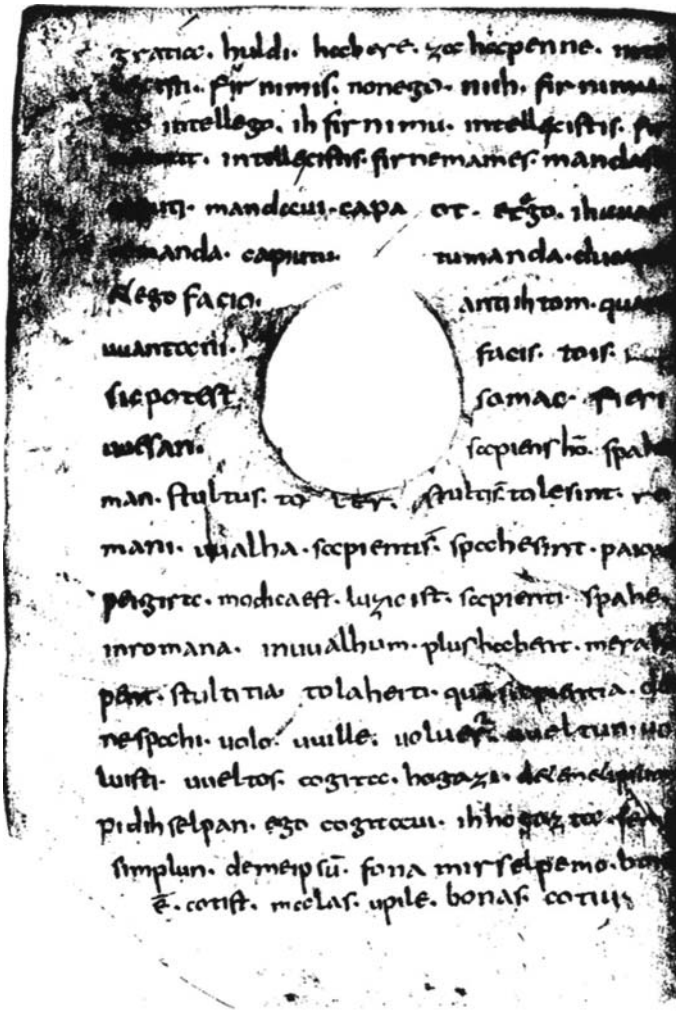 gratia. huldi. habere. za hapenne.
firnimis. nonego. nih. firnimu.
intellego. ih firnimu. intellecistis.
intellecistis. firnemames. mandas
mandaui. capa ot. et ego. ih
manda. capiutu. tumanda.
et ego facio. anti ih tom. quare
uuantani. facis. tois.
sic potest somac. fieri
uuesan. sapiens hō. spahe
man. stultus. toler. stultis̄. tolesint. ro
mani. uualha. sapientis̄. spahesint.
peigira. modicaest. luzic ist. sapienti. spahe
inromana. inuualhum. plus habent. mera ha
pent. stultitia tolaheiti. quā sapientia. de
nespahi. uolo. uuille. uoluer̄. uueltun. uo
luisti. uueltos. cogita. hogazi. detemetipsum
pidih selpan. ego cogitaui. ih hogazta.
simplun. demeipsū. fona mirselpemo. bon
ē. cotist. malas. upile. bonas. cotiu